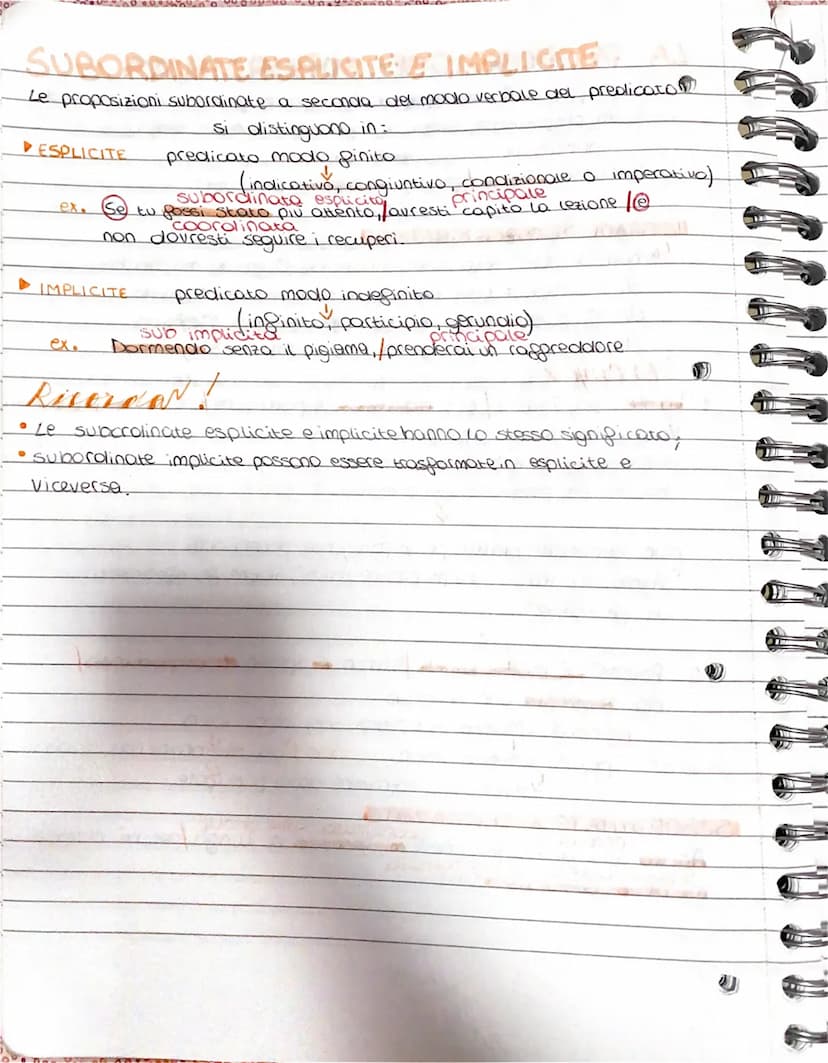 SUBORDINATE ESPLICITE E IMPLICITE
Le proposizioni subordinate a seconda del modo verbale del predicato
si distinguono in:
ESPLICITE predicato modo finito
(indicativo, congiuntivo, condizionale o imperativo)
subordinata esplicita principale
ex. Se tu fossi stato più attento,/avresti capito la lezione /e
coordinata
non dovresti seguire i recuperi.
IMPLICITE predicato modo indefinito
(infinito, participio, gerundio)
sub implicita principale
ex. Dormendo senza il pigiama,/prenderai un raffreddore
Ricorda!
• Le subordinate esplicite e implicite hanno lo stesso significato;
• subordinate implicite possono essere trasformate in esplicite e
viceversa.